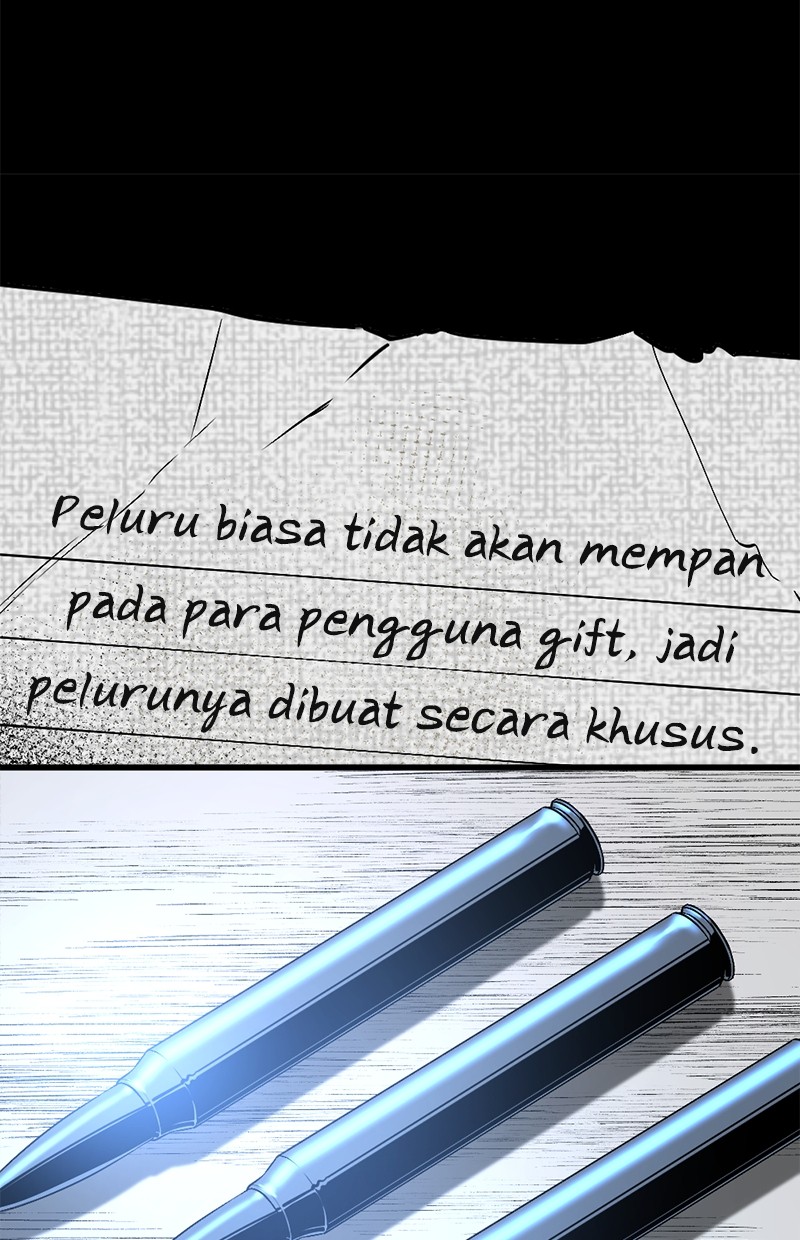 Peluru biasa tidak akan mempan
pada para pengguna gift, jadi
pelurunya dibuat secara khusus.